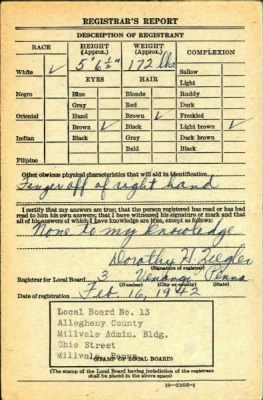 REGISTRAR'S REPORT
DESCRIPTION OF REGISTRANT
RACE HEIGHT (Approx.) WEIGHT (Approx.) COMPLEXION
White ✓ 5' 6½" 172 lbs. Sallow
EYES HAIR Light
Negro Blue Blonde Ruddy
Gray Red Dark
Oriental Hazel Brown ✓ Freckled
Brown ✓ Black Light brown ✓
Indian Black Gray Dark brown
Bald Black
Filipino
Other obvious physical characteristics that will aid in identification
Finger off of right hand
I certify that my answers are true; that the person registered has read or has had
read to him his own answers; that I have witnessed his signature or mark and that
all of his answers of which I have knowledge are true, except as follows:
None to my knowledge
Dorothy H. Ziegler
(Signature of registrar)
Registrar for Local Board 3 Venango Penna
(Number) (City or county) (State)
Date of registration Feb 16, 1942
Local Board No. 13
Allegheny County
Millvale Admin. Bldg.
Ohio Street
Millvale, Penna.
(STAMP OF LOCAL BOARD)
(The stamp of the Local Board having jurisdiction of the registrant
shall be placed in the above space)